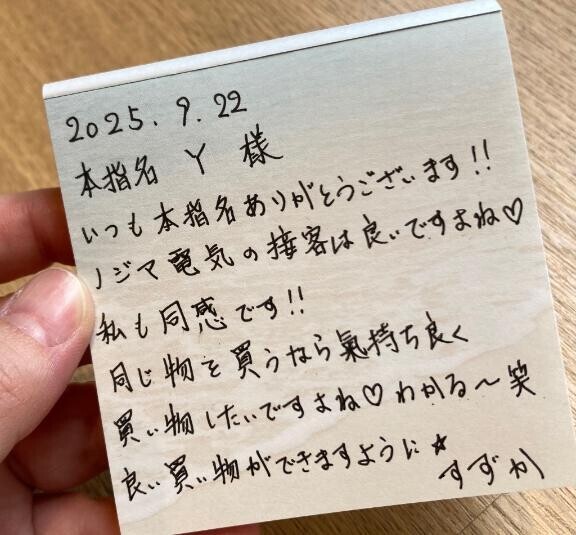 2025.9.22
本指名 Y 様
いつも本指名ありがとうございます!!
ノジマ電気の接客は良いですよね♡
私も同感です!!
同じ物を買うなら氣持ち良く
買い物したいですよね♡わかる〜笑
良い買い物ができますように★
すずか